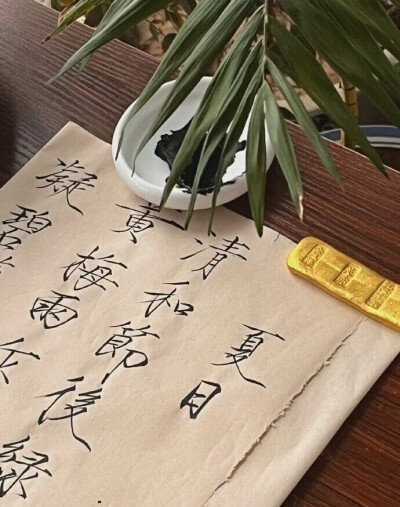 夏日
清和節後緑
黃梅雨
凝碧